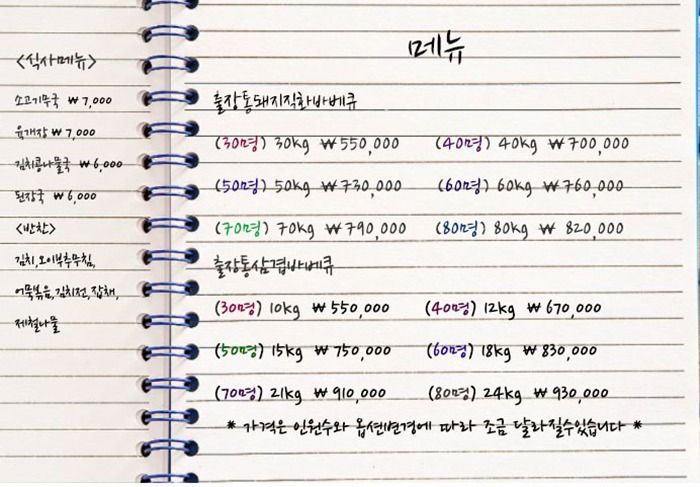 <식사메뉴>
소고기무국 ₩7,000
육개장 ₩7,000
김치콩나물국 ₩6,000
된장국 ₩6,000
<반찬>
김치,오이부추무침,
어묵볶음,김치전,잡채,
제철나물
메뉴
출장통돼지직화바베큐
(30명) 30kg ₩550,000 (40명) 40kg ₩700,000
(50명) 50kg ₩730,000 (60명) 60kg ₩760,000
(70명) 70kg ₩790,000 (80명) 80kg ₩ 820,000
출장통삼겹바베큐
(30명) 10kg ₩550,000 (40명) 12kg ₩670,000
(50명) 15kg ₩750,000 (60명) 18kg ₩830,000
(70명) 21kg ₩910,000 (80명) 24kg ₩930,000
* 가격은 인원수와 옵션변경에 따라 조금 달라질수있습니다 *